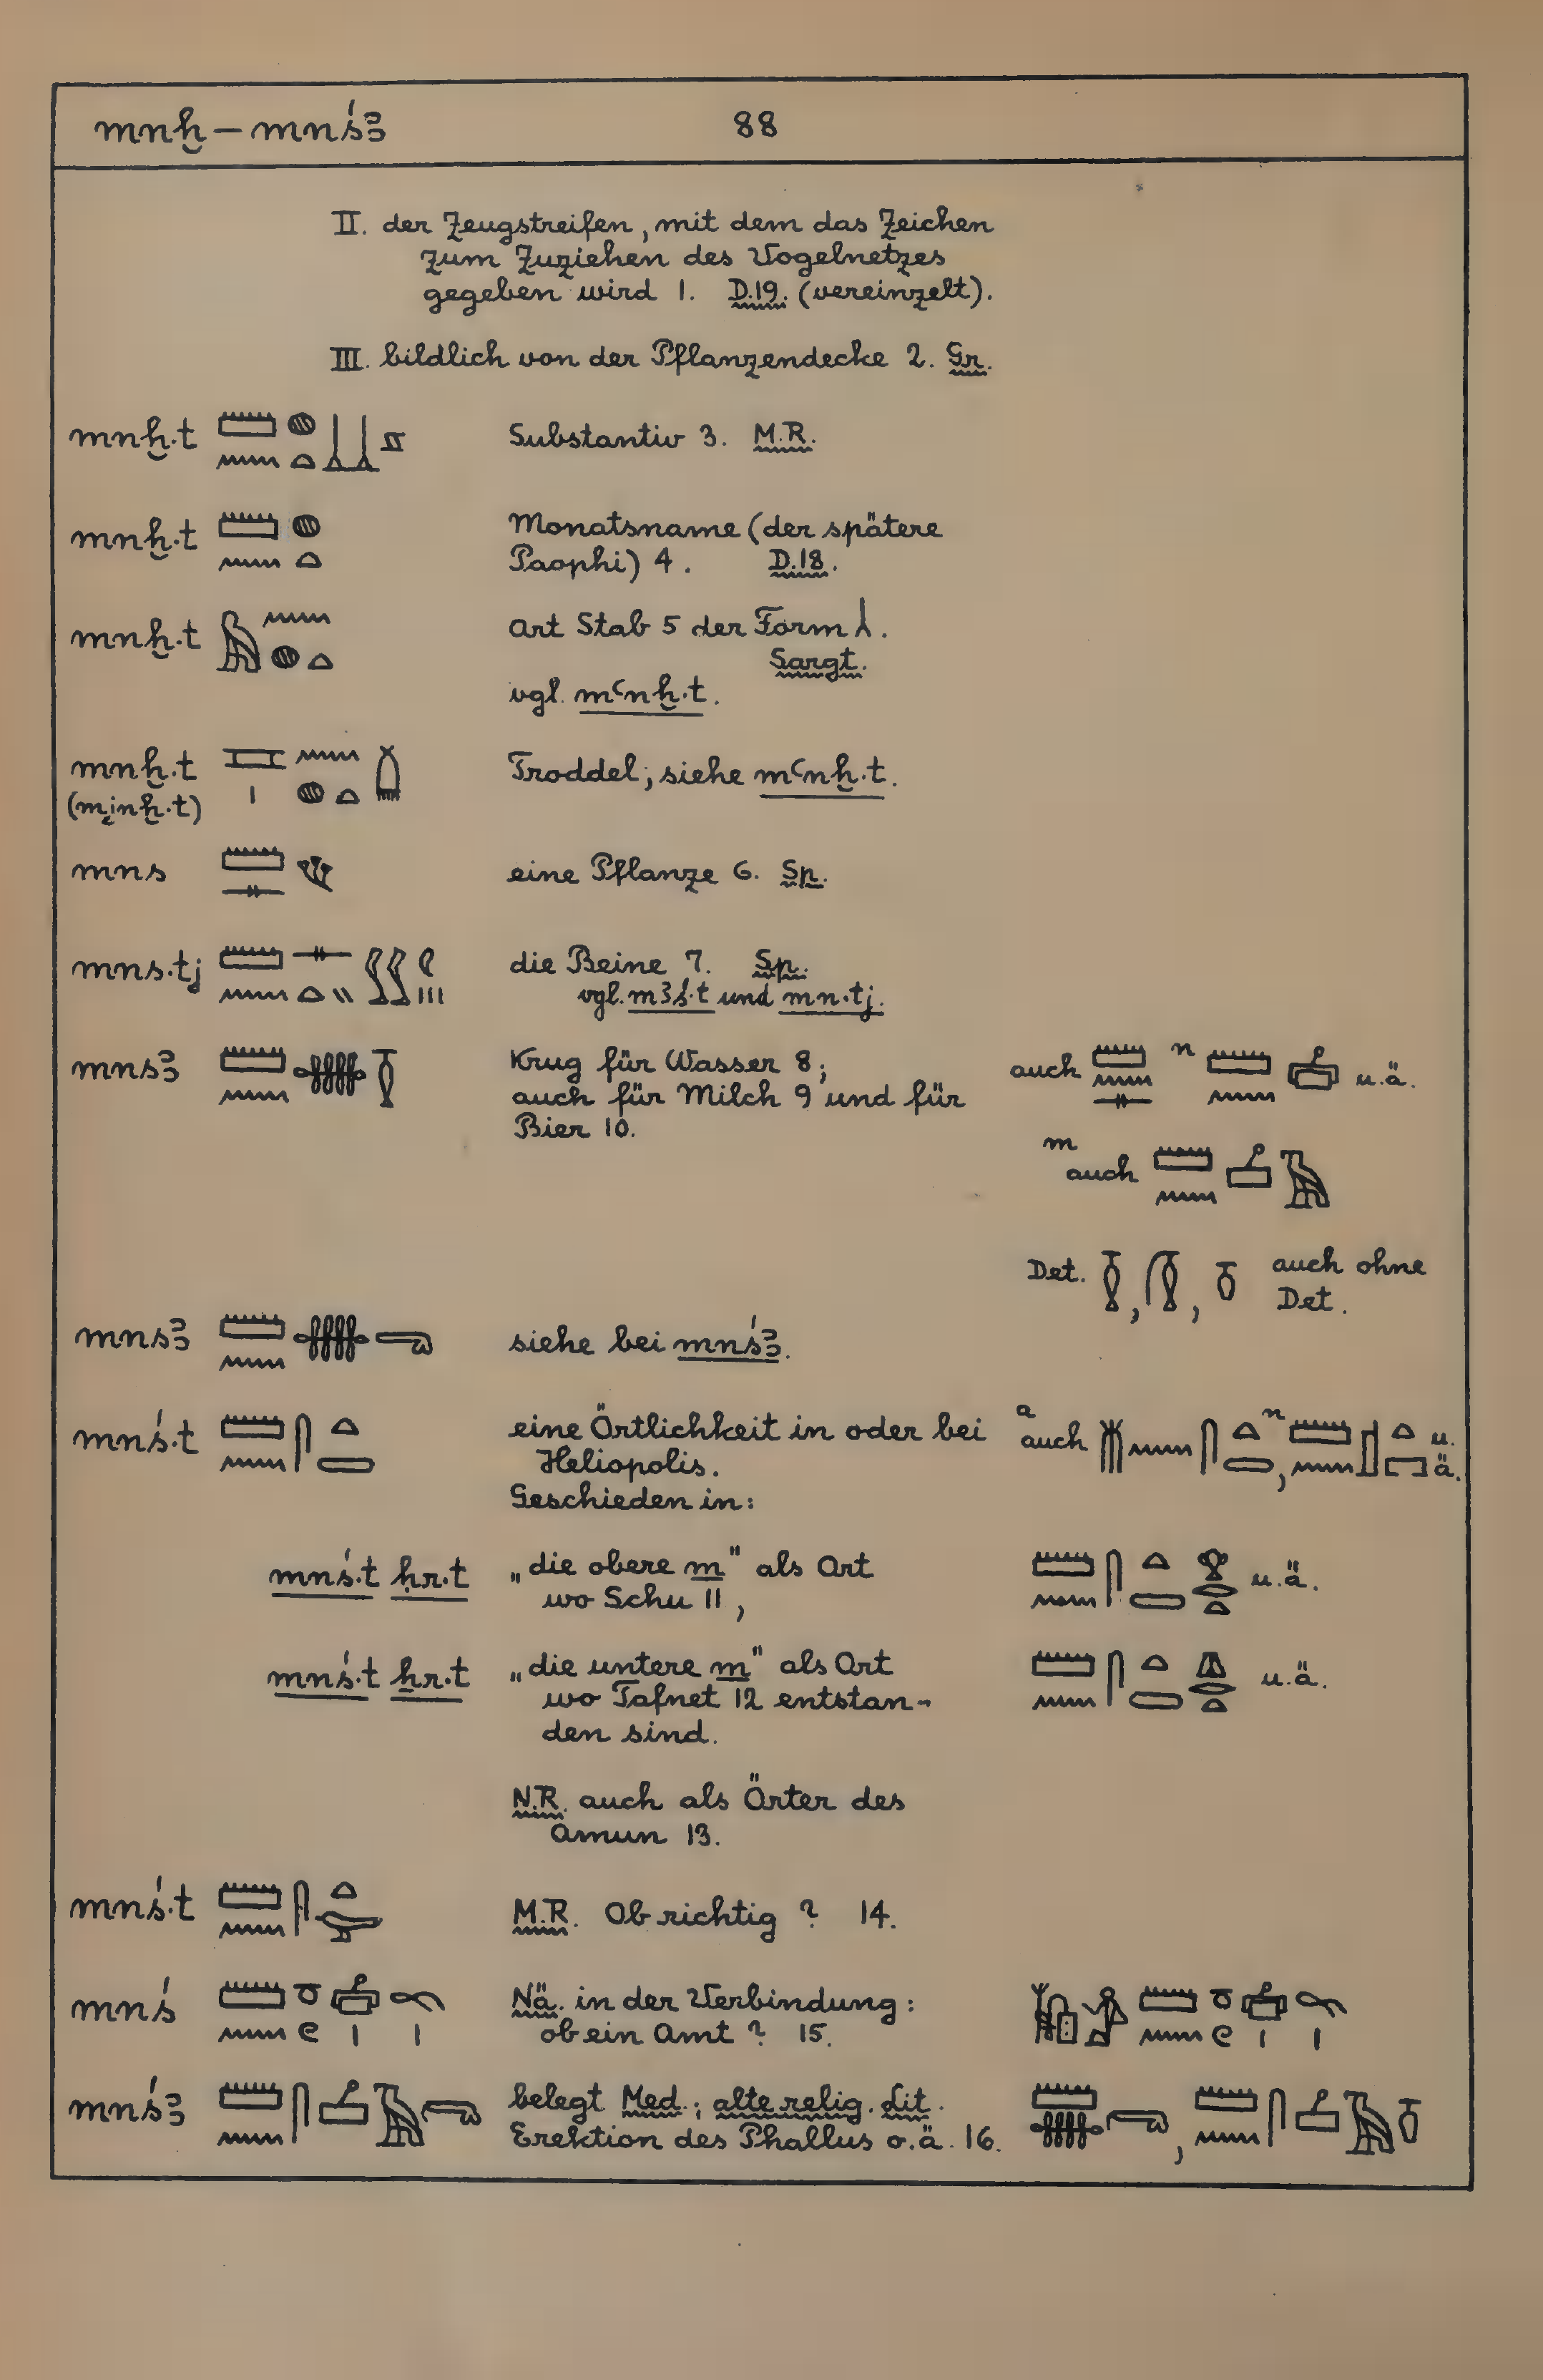 mnḫ — mnśꜣ 88
II. der Zeugstreifen, mit dem das Zeichen
zum Zuziehen des Vogelnetzes
gegeben wird 1. D.19. (vereinzelt).
III. bildlich von der Pflanzendecke 2. Gr.
mnḫ.t Substantiv 3. M.R.
mnḫ.t Monatsname (der spätere
Paophi) 4. D.18.
mnḫ.t Art Stab 5 der Form
Sargt.
vgl. mꜥnḫ.t.
mnḫ.t Troddel; siehe mꜥnḫ.t.
(mi̯nḫ.t)
mns eine Pflanze 6. Sp.
mns.tj die Beine 7. Sp.
vgl. mꜣś.t und mn.tj.
mnsꜣ Krug für Wasser 8; auch n u.ä.
auch für Milch 9 und für
Bier 10.
m
auch
Det. , , auch ohne
Det.
mnsꜣ siehe bei mnśꜣ.
mnś.t eine Örtlichkeit in oder bei a auch , n u.ä.
Heliopolis.
Geschieden in:
mnś.t ḥr.t „die obere m" als Ort u.ä.
wo Schu 11,
mnś.t ẖr.t „die untere m" als Ort u.ä.
wo Tafnet 12 entstan-
den sind.
N.R. auch als Örter des
Amun 13.
mnś.t M.R. Ob richtig? 14.
mnś Nä. in der Verbindung:
ob ein Amt? 15.
mnśꜣ belegt Med.; alte relig. Lit.
Erektion des Phallus o.ä. 16. ,